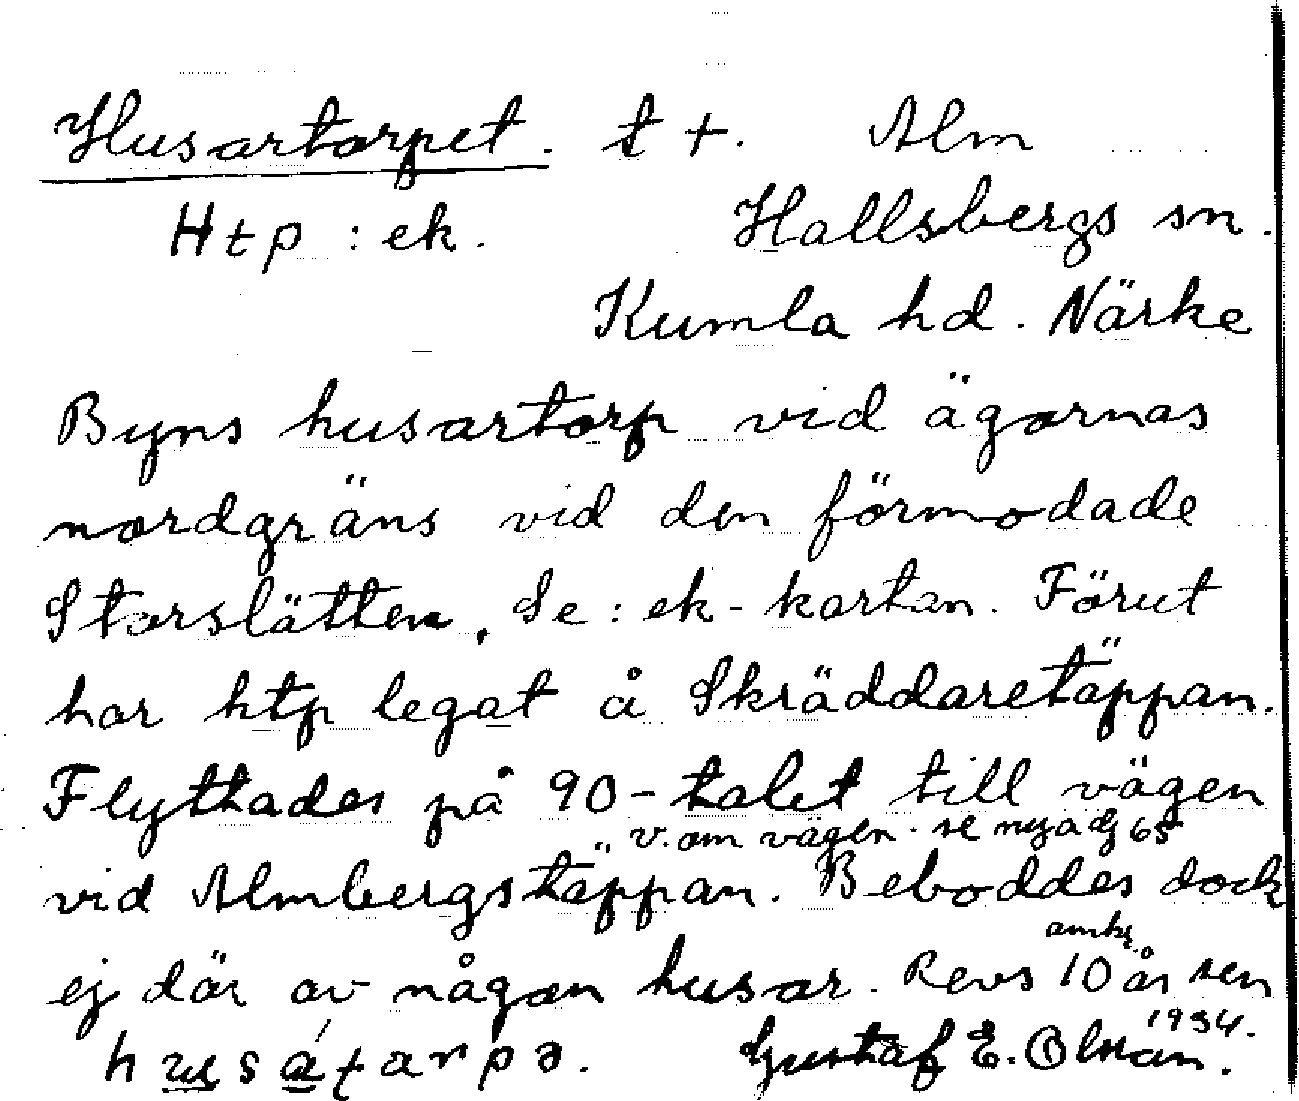 Husartorpet. t +. Alm
Htp : ek. Hallsbergs sn.
Kumla hd. Närke
Byns husartorp vid ägornas
nordgräns vid den förmodade
Storslätten. Se : ek-kartan. Förut
har htp legat å Skräddaretäppan.
Flyttades på 90-talet till vägen
v. om vägen. se nya
vid Almbergstäppan. Beboddes dock
omkr.
ej där av någon husar. Revs 10 år sen
1934.
Gustaf E. Olsson.